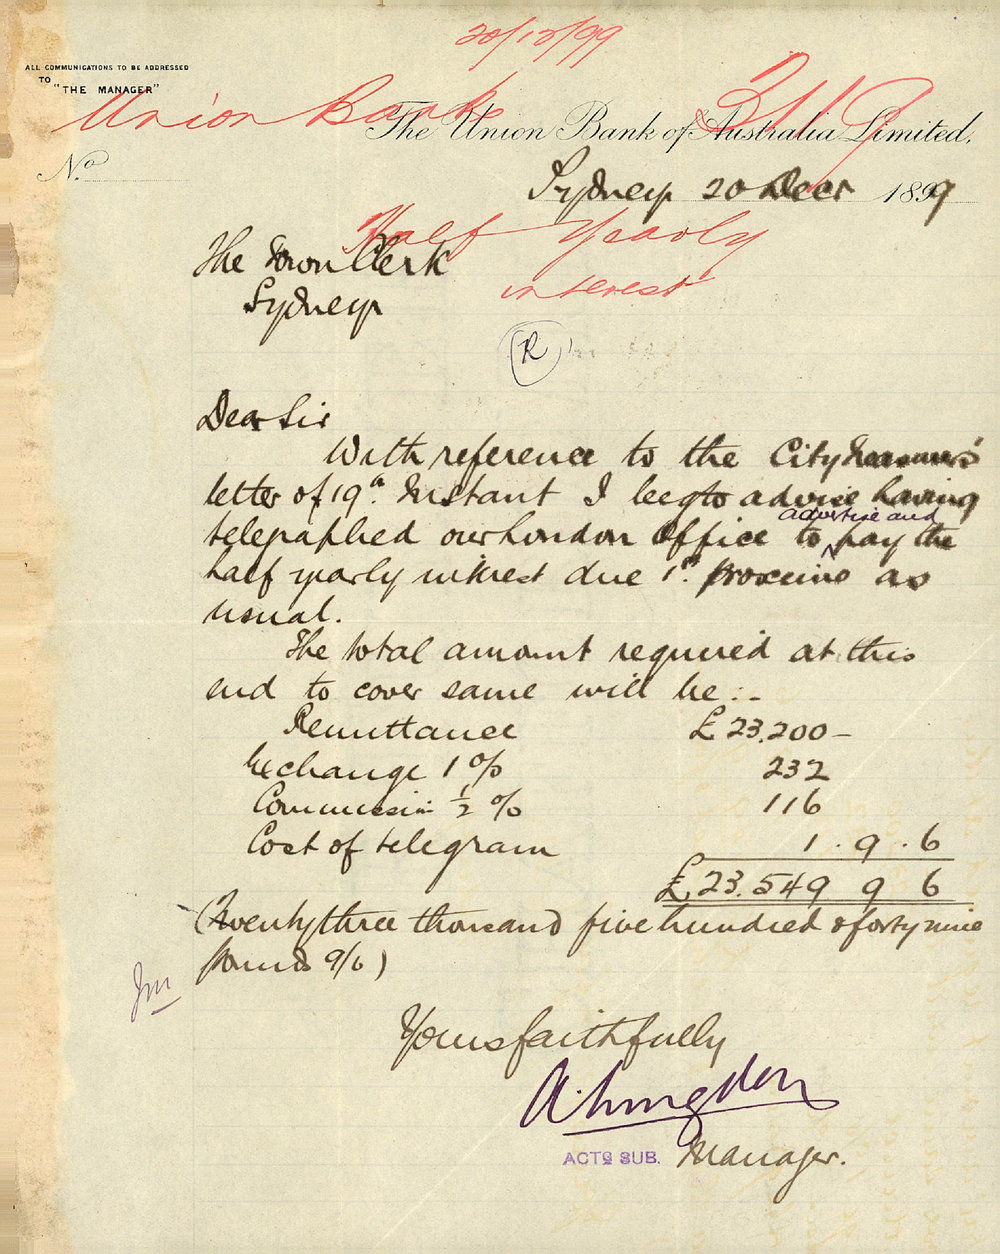 20/12/99
ALL COMMUNICATIONS TO BE ADDRESSED
TO "THE MANAGER"
Union Bank
The Union Bank of Australia Limited.
No.
Sydney 20 Decr 1899
Half Yearly
interest
The Town Clerk
Sydney
R
Dear Sir
With reference to the City Treasurer's
letter of 19th Instant I beg to advise having
advertise and
telegraphed our London Office to pay the
half yearly interest due 1st proximo as
usual.
The total amount required at this
end to cover same will be:-
Remittance £23,200-
Exchange 1% 232
Commission ½% 116
Cost of telegram 1.9.6
£23.549 9 6
(Twenty three thousand five hundred & forty nine
pounds 9/6)
Yours faithfully
ACTG SUB. Manager.